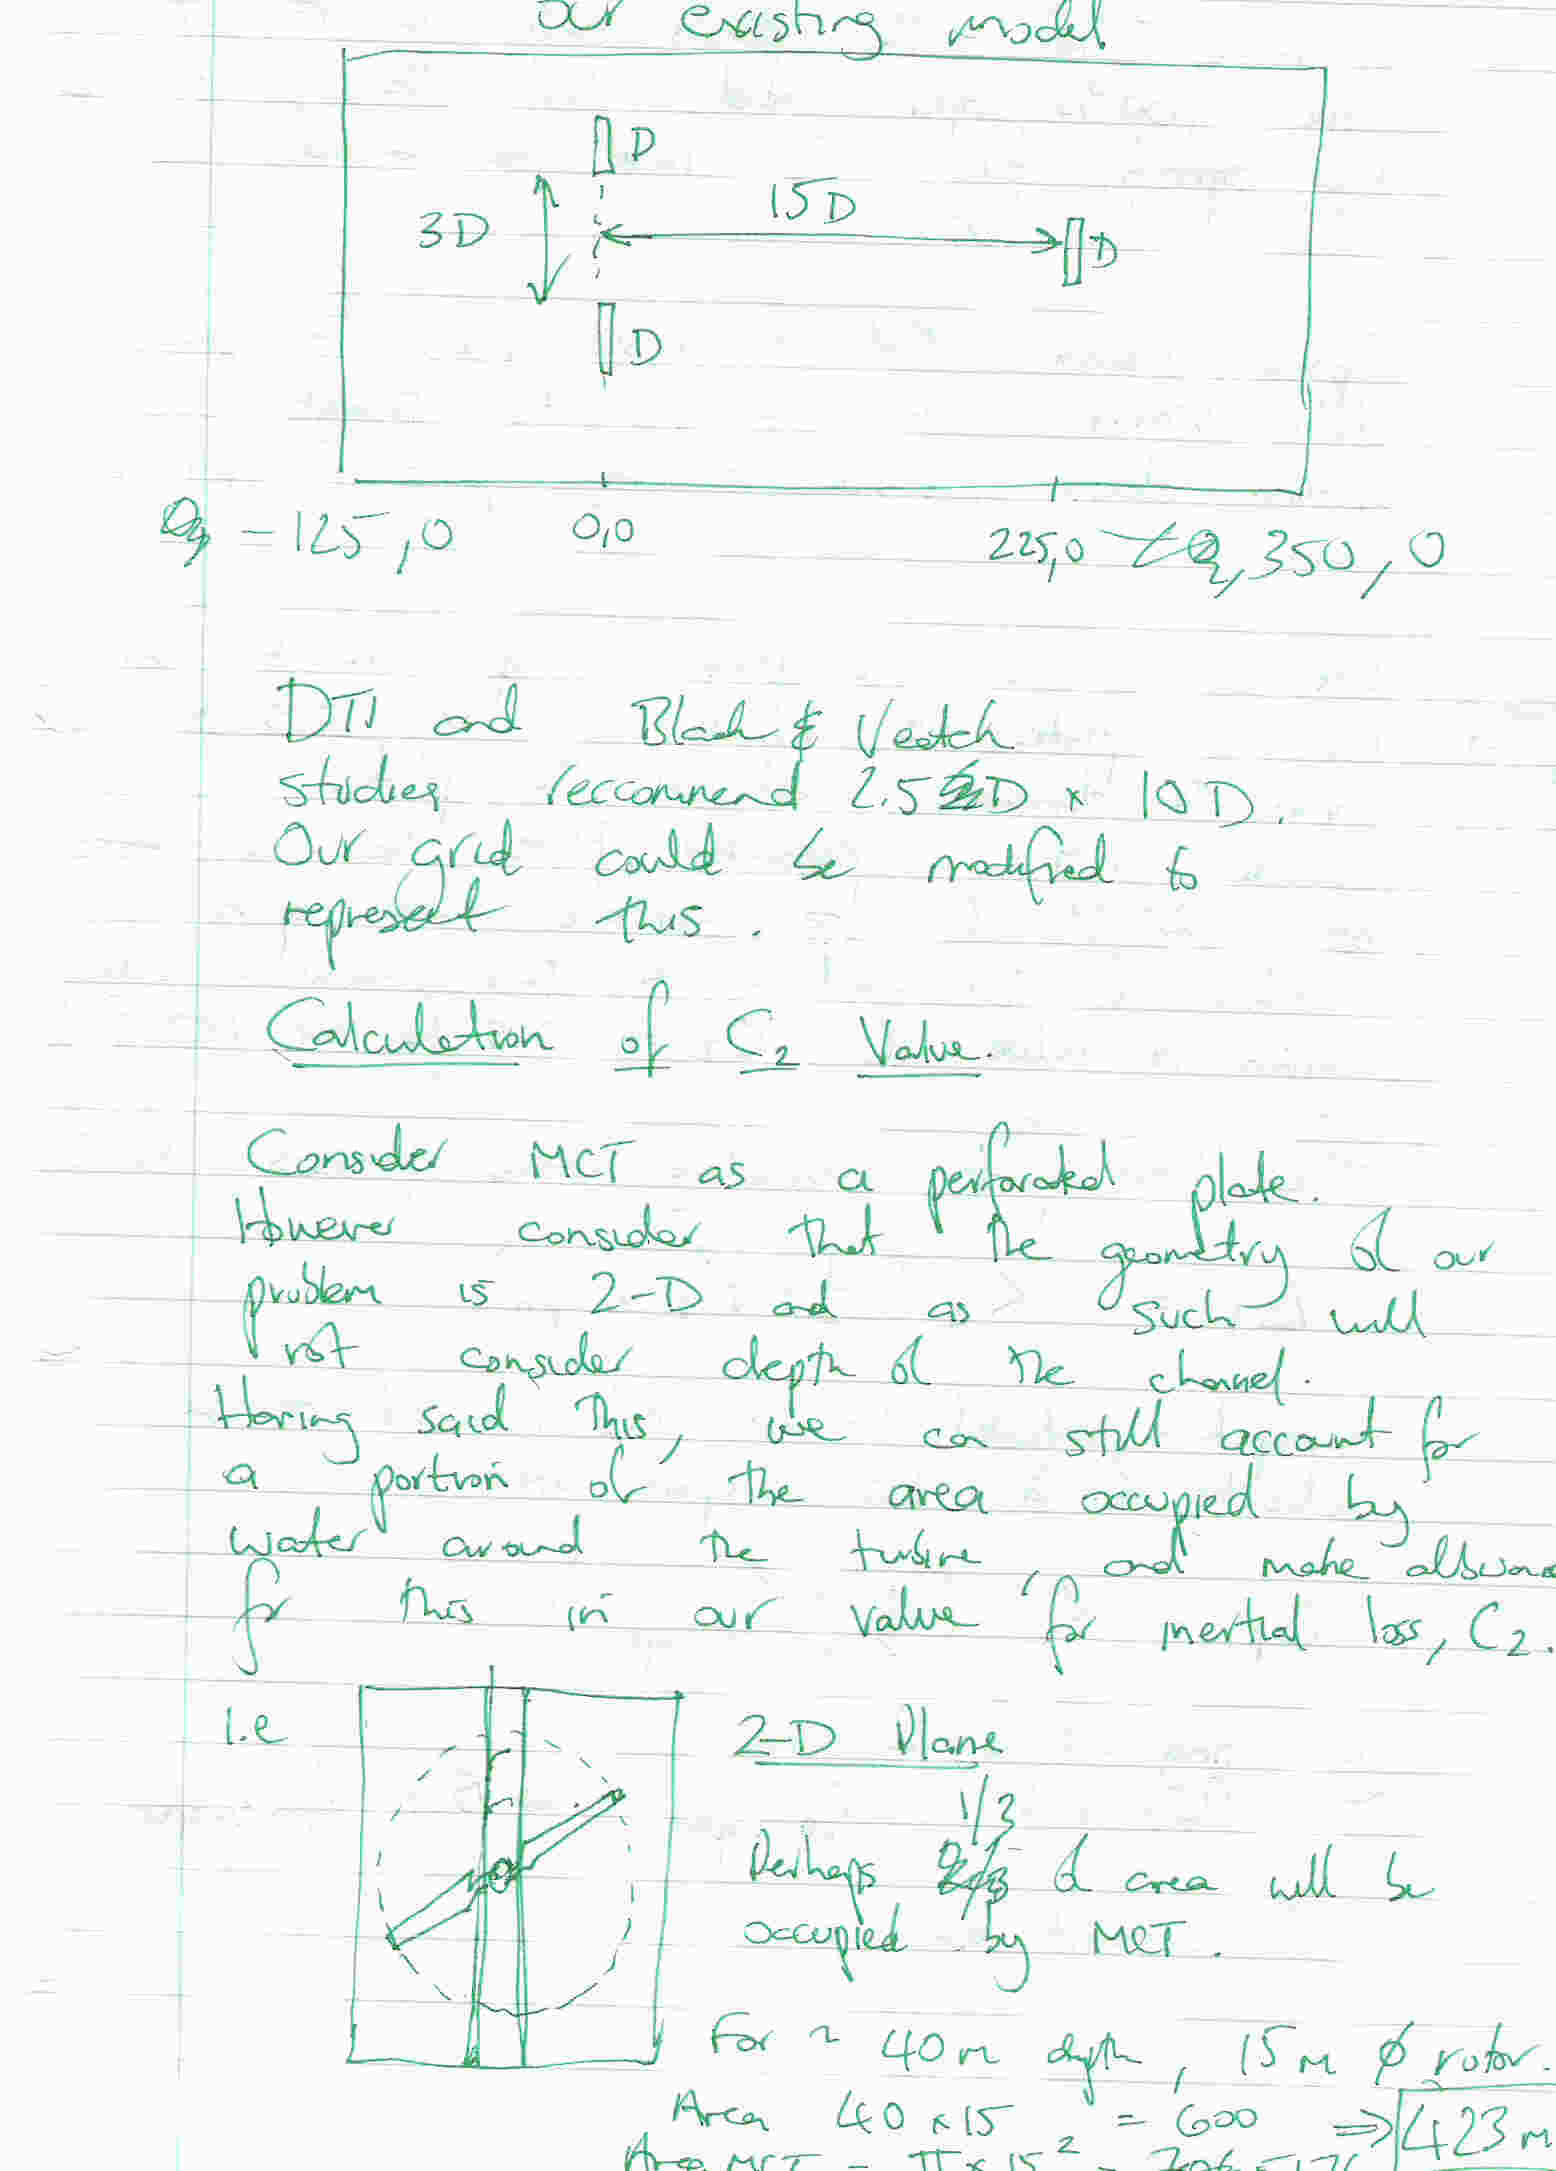 our existing model
D
15D
3D
D
D
-125,0 0,0 225,0 350,0
DTI and Black & Veatch
studies reccommend 2.5D x 10D.
Our grid could be modified to
represent this.
Calculation of C₂ Value.
Consider MCT as a perforated plate.
However consider that the geometry of our
problem is 2-D and as such will
not consider depth of the channel.
Having said this, we can still account for
a portion of the area occupied by
water around the turbine, and make allowance
for this in our value for inertial loss, C₂.
i.e 2-D Plane
1/3
Perhaps of area will be
occupied by MCT.
For ~ 40m depth, 15m ϕ rotor.
Area 40 x 15 = 600 ⇒ 423 m
Area MCT = π x 15²